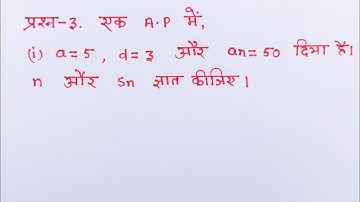 प्रश्न-३. एक A.P में,
(i) a=5, d=३ और an=50 दिया है।
n और Sn ज्ञात कीजिए।